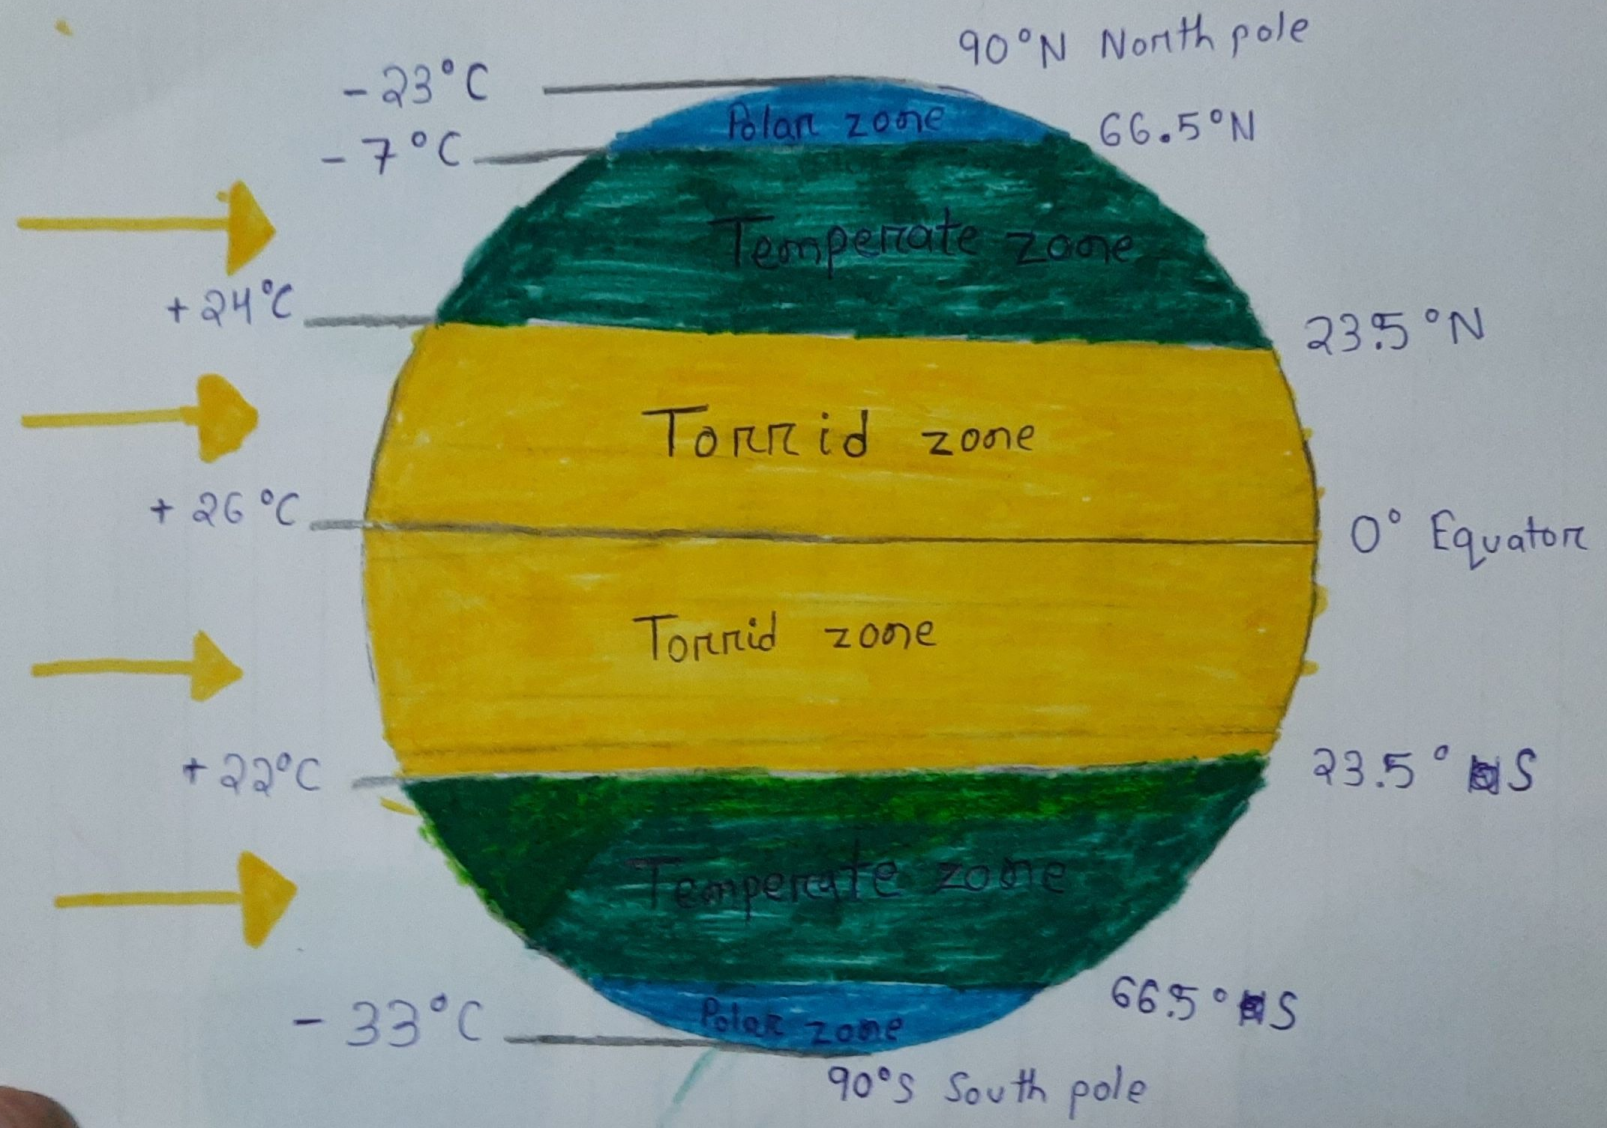 90°N North pole
-23°C
Polar zone
66.5°N
-7°C
Temperate zone
+24°C
23.5°N
Torrid zone
+26°C
0° Equator
Torrid zone
+22°C
23.5° S
Temperate zone
66.5° S
-33°C
Polar zone
90°S South pole